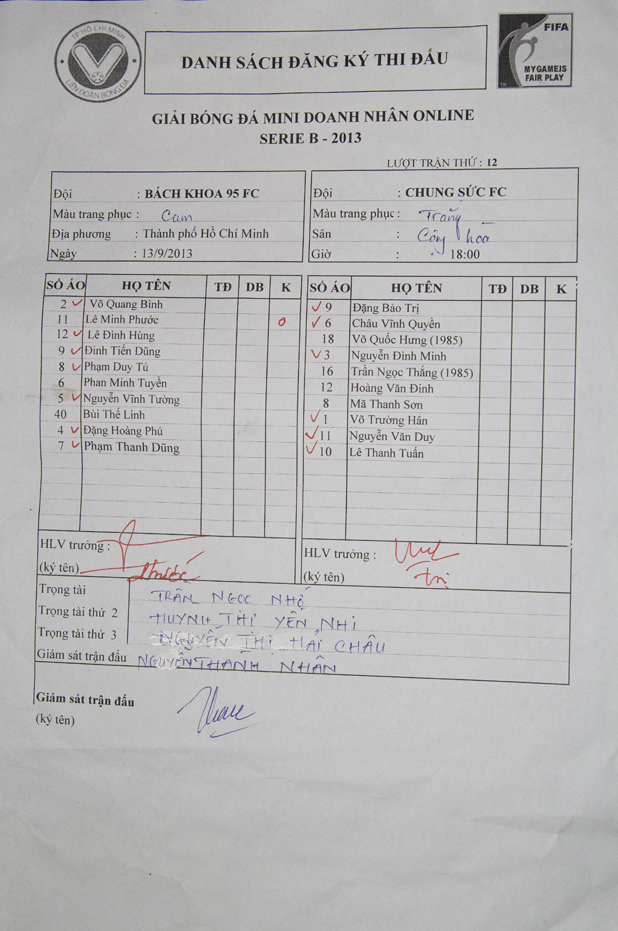 TP HỒ CHÍ MINH
LIÊN ĐOÀN BÓNG ĐÁ
DANH SÁCH ĐĂNG KÝ THI ĐẤU
FIFA
MY GAME IS
FAIR PLAY
GIẢI BÓNG ĐÁ MINI DOANH NHÂN ONLINE
SERIE B - 2013
LƯỢT TRẬN THỨ : 12
Đội : BÁCH KHOA 95 FC
Màu trang phục : Cam
Địa phương : Thành phố Hồ Chí Minh
Ngày : 13/9/2013
Đội : CHUNG SỨC FC
Màu trang phục : Trắng
Sân : Cộng hòa
Giờ : 18:00
SỐ ÁO HỌ TÊN TĐ DB K
2 Võ Quang Bình
11 Lê Minh Phước 0
12 Lê Đình Hùng
9 Đinh Tiến Dũng
8 Phạm Duy Tú
6 Phan Minh Tuyền
5 Nguyễn Vĩnh Tường
40 Bùi Thế Linh
4 Đặng Hoàng Phú
7 Phạm Thanh Dũng
HLV trưởng :
(ký tên) Phước
SỐ ÁO HỌ TÊN TĐ DB K
9 Đặng Bảo Trị
6 Châu Vĩnh Quyền
18 Võ Quốc Hưng (1985)
3 Nguyễn Đình Minh
16 Trần Ngọc Thắng (1985)
12 Hoàng Văn Đinh
8 Mã Thanh Sơn
1 Võ Trường Hân
11 Nguyễn Văn Duy
10 Lê Thanh Tuấn
HLV trưởng :
(ký tên) Trị
Trọng tài TRẦN NGỌC NHỚ
Trọng tài thứ 2 HUỲNH THỊ YẾN NHI
Trọng tài thứ 3 NGUYỄN THỊ HẢI CHÂU
Giám sát trận đấu NGUYỄN THANH NHÂN
Giám sát trận đấu
(ký tên)